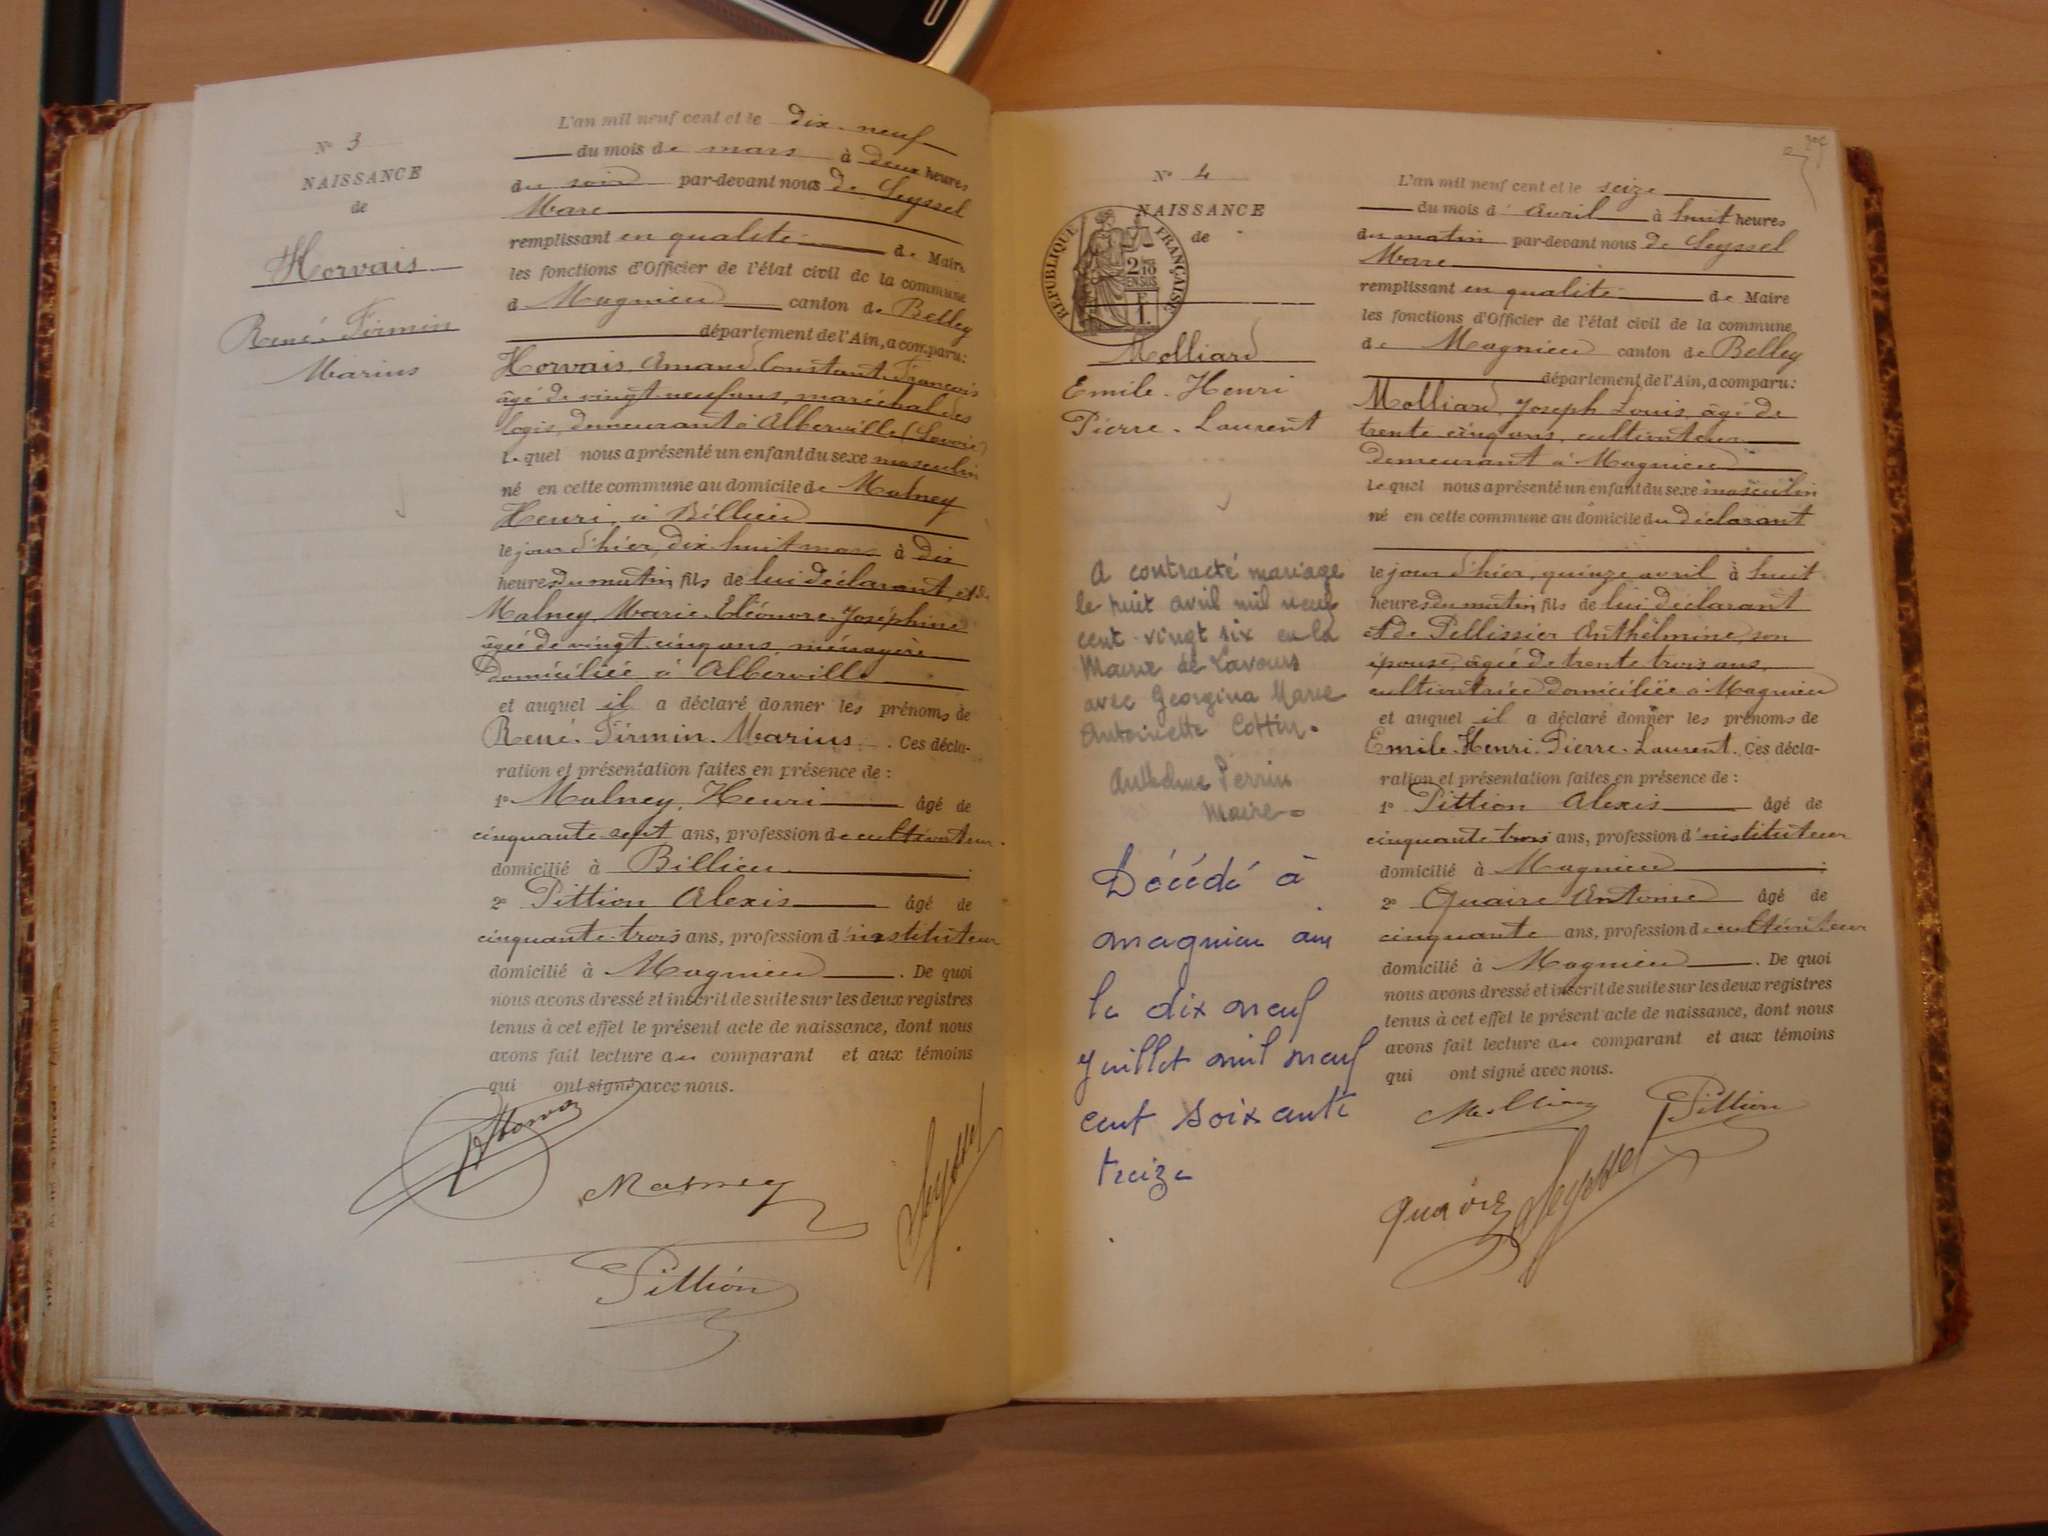 N° 3
NAISSANCE
de
Horvais
René-Firmin
Marius
L'an mil neuf cent et le dix-neuf
du mois de mars à deux heures
du soir par-devant nous de Seyssel
Marc
remplissant en qualité de Maire
les fonctions d'Officier de l'état civil de la commune
d Magnieu canton de Belley
département de l'Ain, a comparu:
Horvais, Amand Constant François
âgé de vingt neuf ans, maréchal des
logis, demeurant à Alberville (Savoie)
lequel nous a présenté un enfant du sexe masculin
né en cette commune au domicile de Malney
Henri, à Billieu
le jour d'hier, dix huit mars à dix
heures du matin, fils de lui déclarant, et de
Malney, Marie-Eléonore-Joséphine
âgée de vingt cinq ans, ménagère
domiciliée à Alberville
et auquel il a déclaré donner les prénoms de
René-Firmin-Marius. Ces décla-
ration et présentation faites en présence de :
1° Malney, Henri âgé de
cinquante-sept ans, profession de cultivateur
domicilié à Billieu ;
2° Pittion Alexis âgé de
cinquante-trois ans, profession d'instituteur
domicilié à Magnieu. De quoi
nous avons dressé et inscrit de suite sur les deux registres
tenus à cet effet le présent acte de naissance, dont nous
avons fait lecture au comparant et aux témoins
qui ont signé avec nous.
Malney
Seyssel
Pittion
N° 4
NAISSANCE
de
RÉPUBLIQUE FRANÇAISE
2/10
EN SUS
Molliard
Emile-Henri
Pierre-Laurent
A contracté mariage
le huit avril mil neuf
cent vingt six en la
Mairie de Lavours
avec Georgina Marie
Antoinette Cottin.
Anthelme Perrin
Maire
Décédé à
magnieu ain
le dix neuf
juillet mil neuf
cent soixante
treize
L'an mil neuf cent et le seize
du mois d'Avril à huit heures
du matin par-devant nous de Seyssel
Marc
remplissant en qualité de Maire
les fonctions d'Officier de l'état civil de la commune
de Magnieu canton de Belley
département de l'Ain, a comparu:
Molliard, Joseph Louis, âgé de
trente-cinq ans, cultivateur
demeurant à Magnieu
lequel nous a présenté un enfant du sexe masculin
né en cette commune au domicile du déclarant
le jour d'hier, quinze avril à huit
heures du matin fils de lui déclarant
et de Pellissier Anthelmine, son
épouse, âgée de trente trois ans,
cultivatrice domiciliée à Magnieu
et auquel il a déclaré donner les prénoms de
Emile-Henri-Pierre-Laurent. Ces décla-
ration et présentation faites en présence de :
1° Pittion Alexis âgé de
cinquante-trois ans, profession d'instituteur
domicilié à Magnieu ;
2° Quaire Antoine âgé de
cinquante ans, profession de cultivateur
domicilié à Magnieu. De quoi
nous avons dressé et inscrit de suite sur les deux registres
tenus à cet effet le présent acte de naissance, dont nous
avons fait lecture au comparant et aux témoins
qui ont signé avec nous.
Molliard Pittion
Seyssel